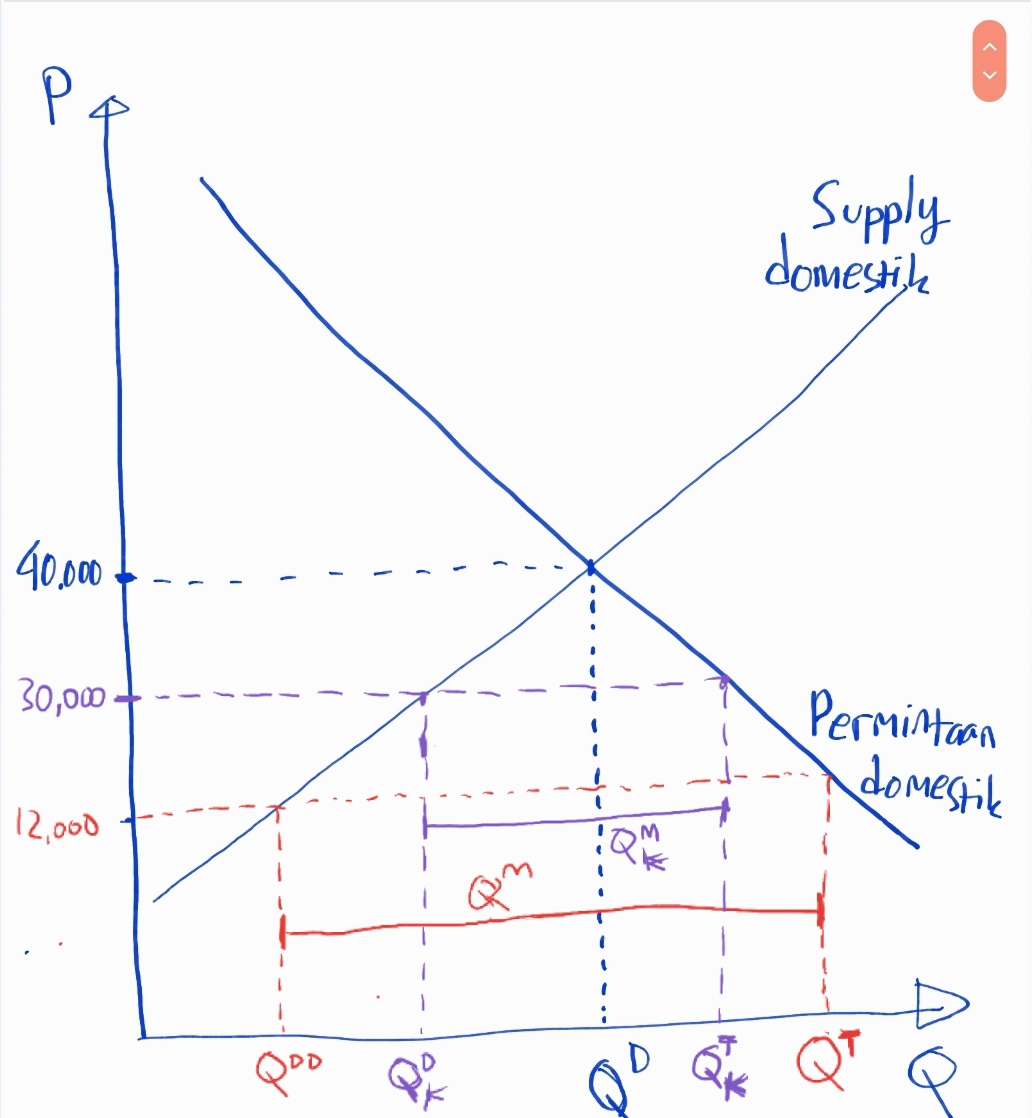 P
Supply
domestik
40.000
30,000
Permintaan
domestik
12,000
Q^M_K
Q^M
Q^DD
Q^D_K
Q^D
Q^T_K
Q^T
Q